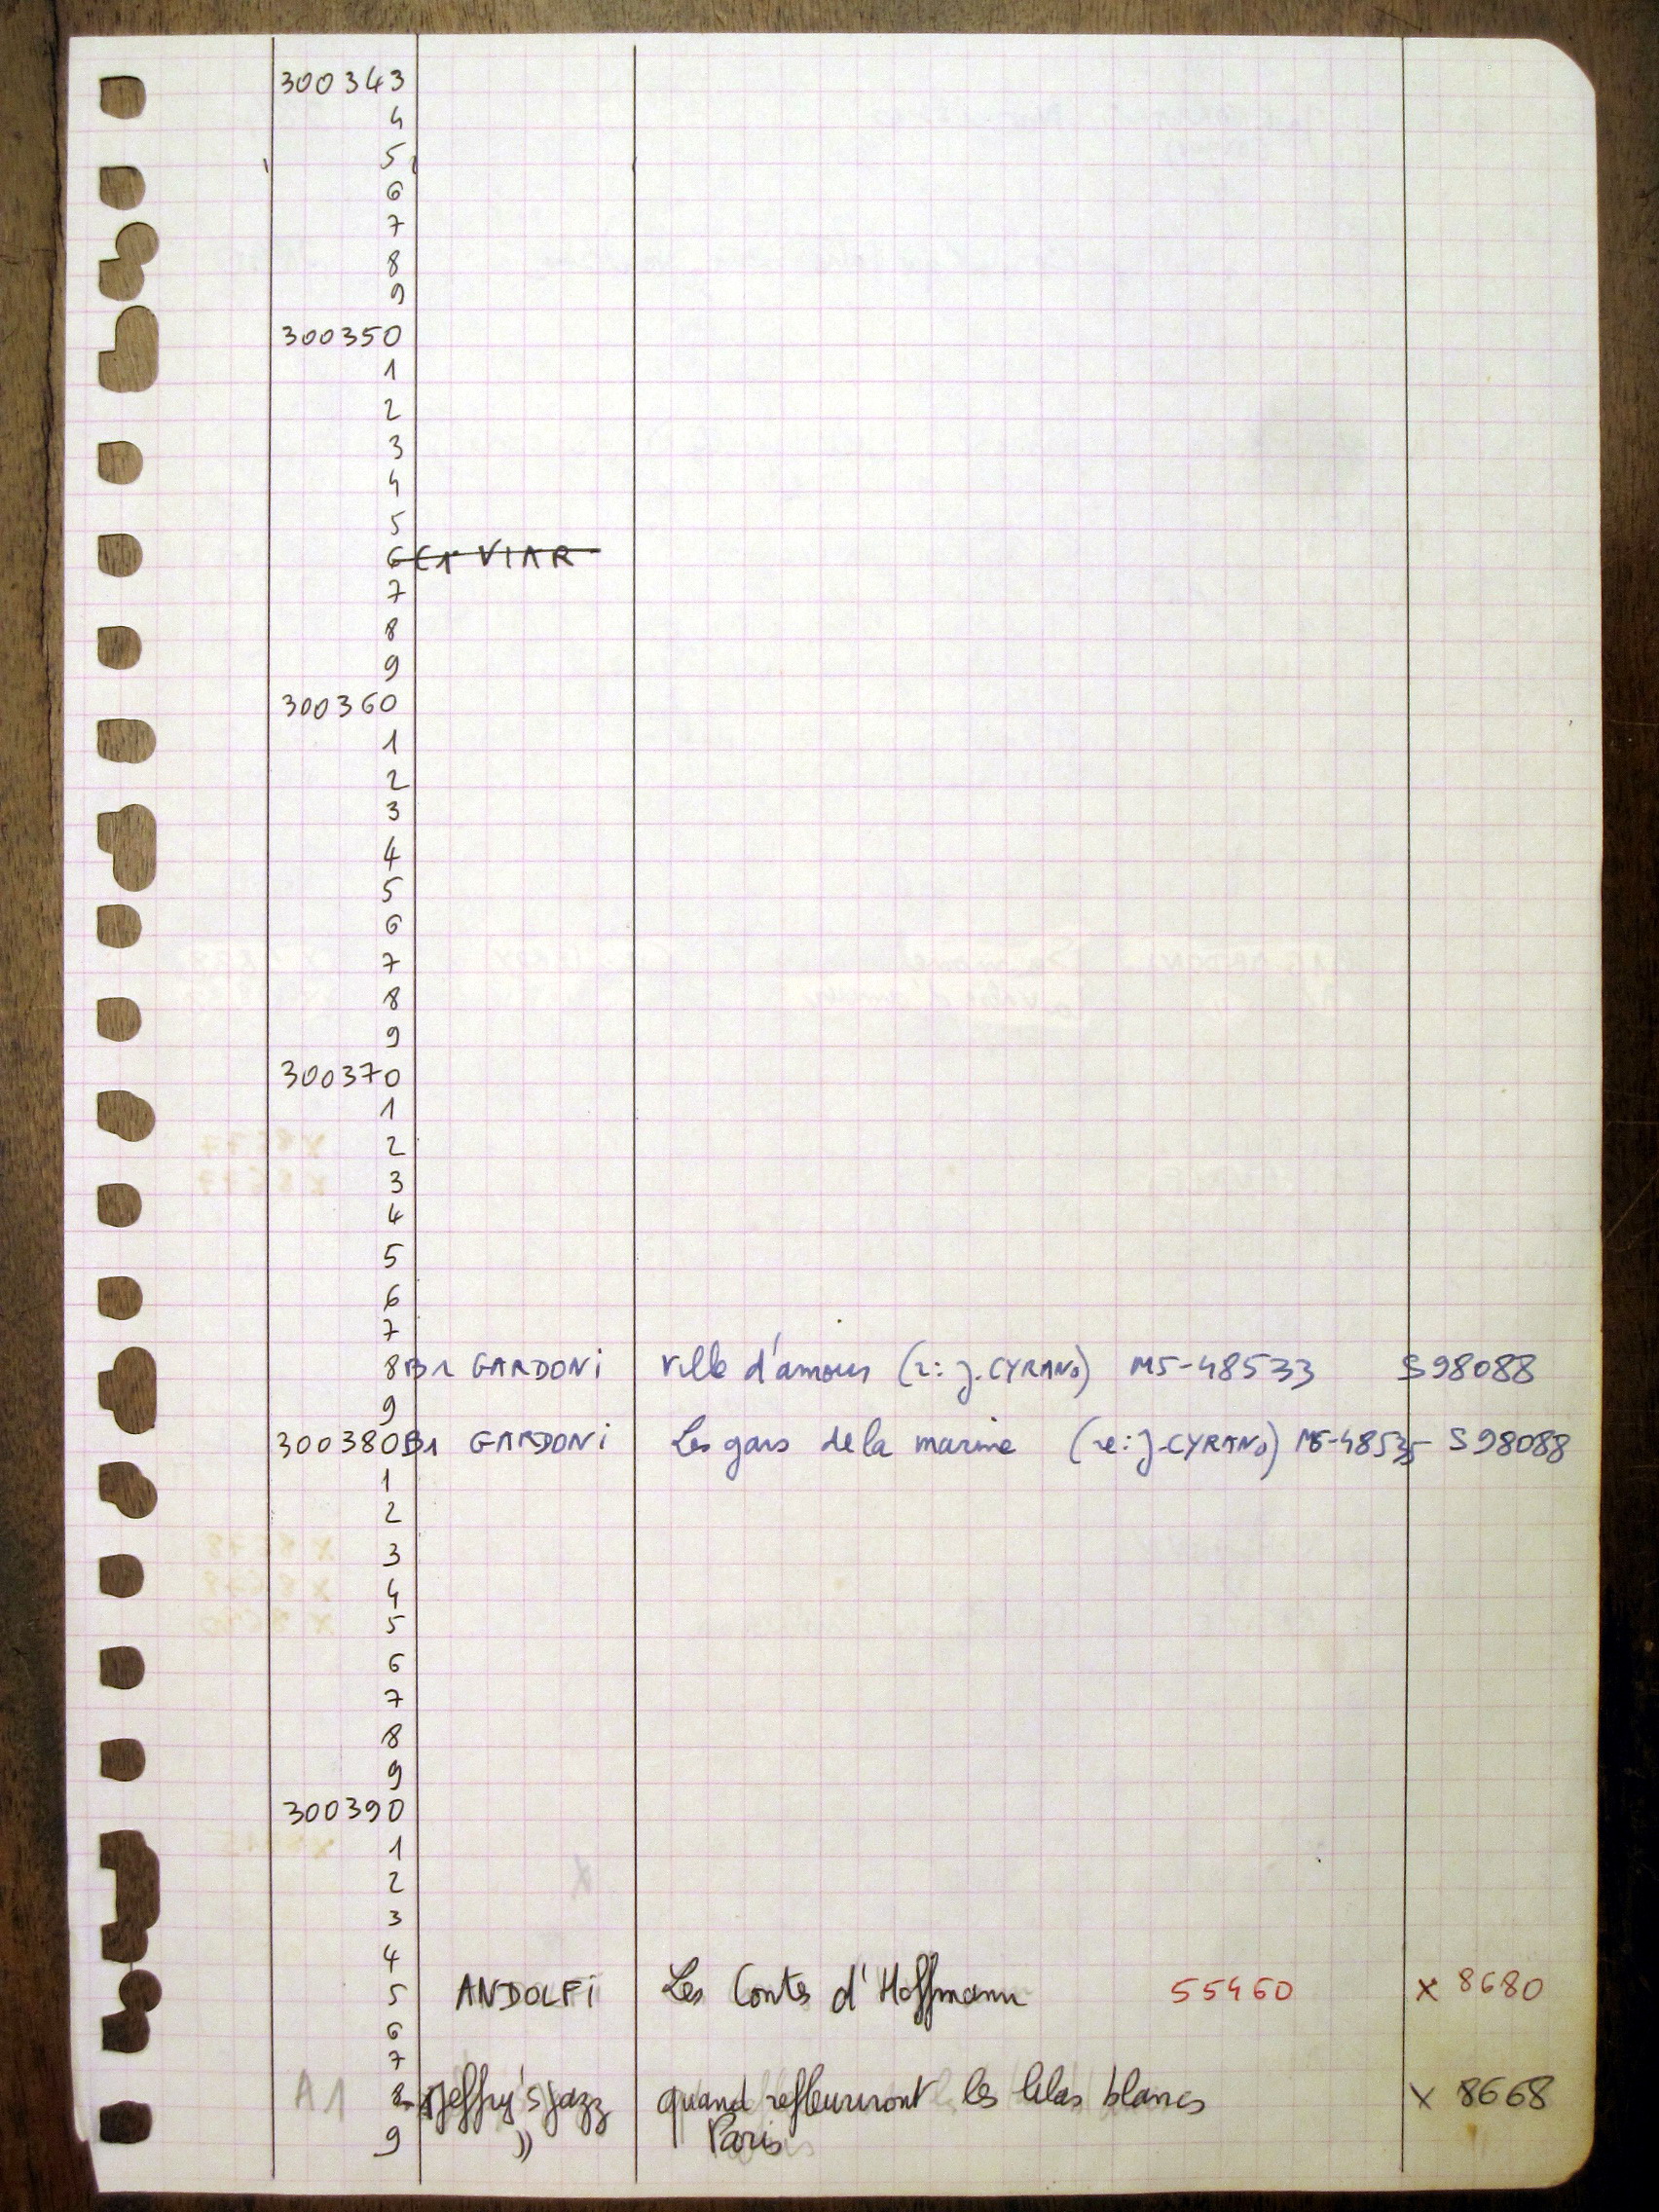 300343
4
5
6
7
8
9
300350
1
2
3
4
5
6 C1 VIAR
7
8
9
300360
1
2
3
4
5
6
7
8
9
300370
1
2
3
4
5
6
7
8 B1 GARDONI Ville d'amour (r: J. CYRANO) M5-48533 S98088
9
300380 B1 GARDONI Les gars de la marine (re: J. CYRANO) M5-48535 S98088
1
2
3
4
5
6
7
8
9
300390
1
2
3
4
5 ANDOLFI Les Contes d'Hoffmann 55460 x 8680
6
7
A1 8 Jeffry's jazz quand refleuriront les lilas blancs x 8668
9 " Paris